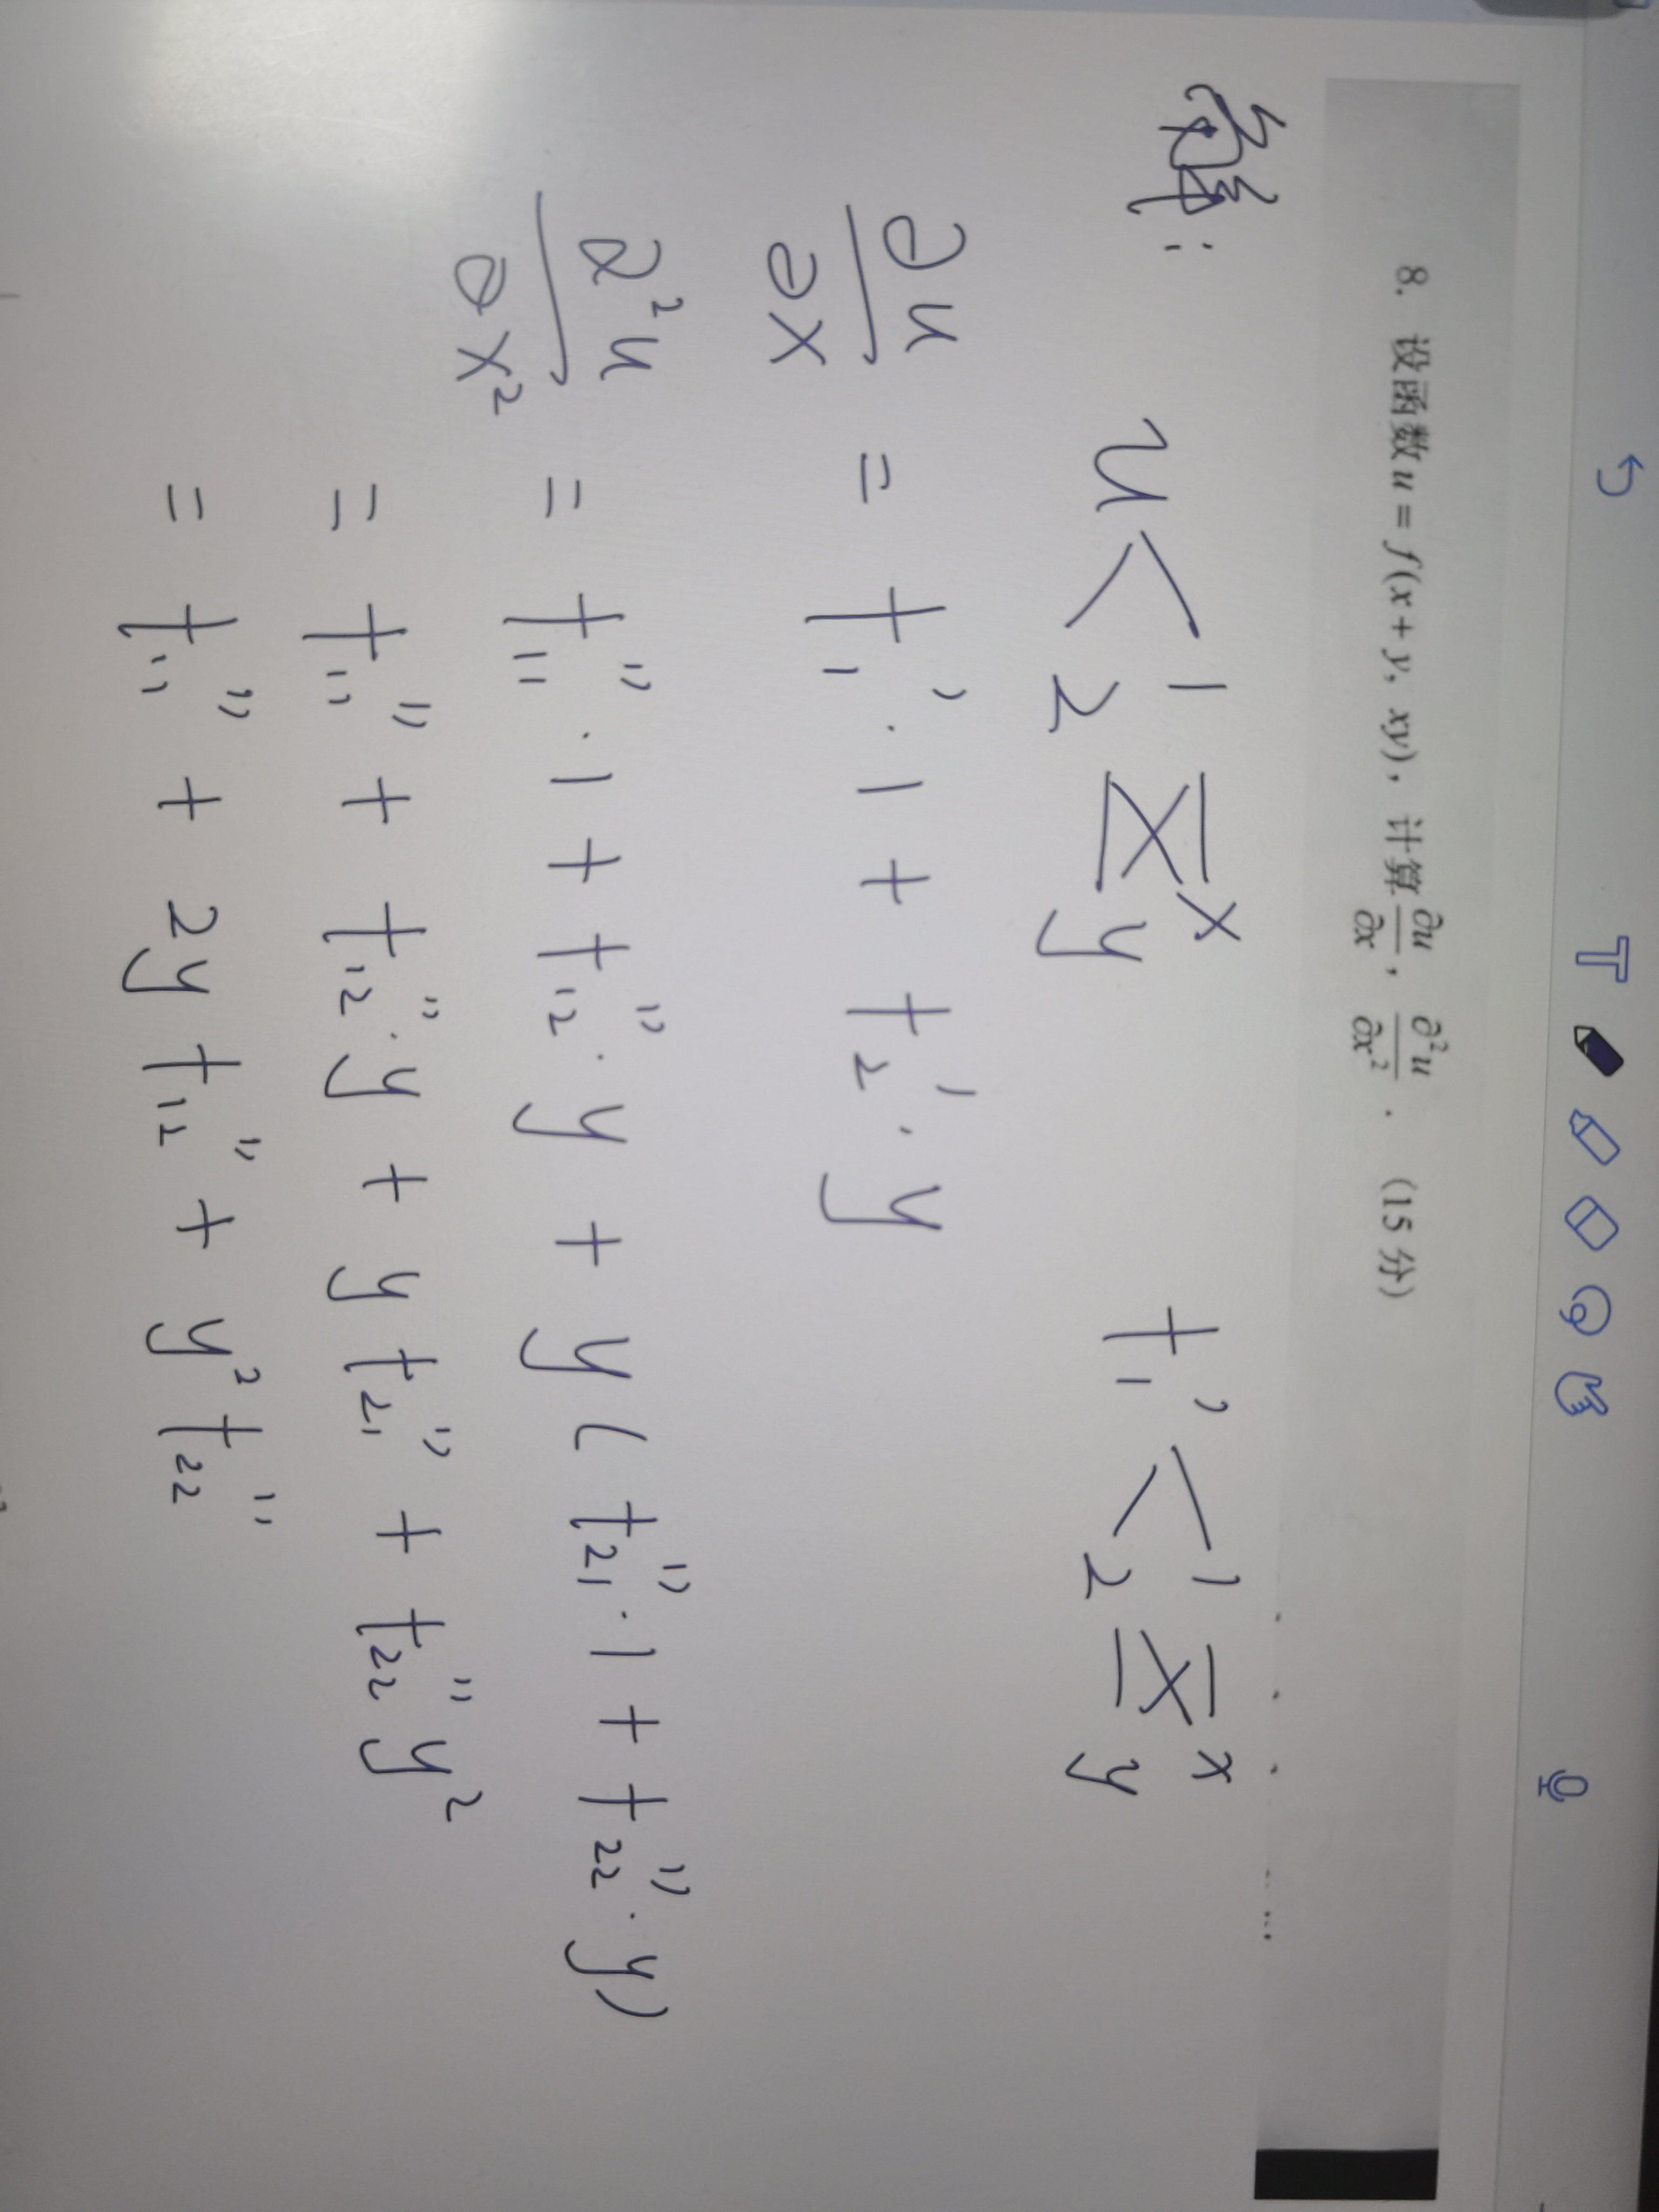 T
8. 设函数u = f(x + y, xy), 计算∂u/∂x, ∂²u/∂x². (15 分)
解: u < 1 2 x y f₁' < 1 2 x y
∂u/∂x = f₁' · 1 + f₂' · y
∂²u/∂x² = f₁₁'' · 1 + f₁₂'' · y + y ( f₂₁'' · 1 + f₂₂'' · y )
= f₁₁'' + f₁₂'' · y + y f₂₁'' + f₂₂'' y²
= f₁₁'' + 2y f₁₂'' + y² f₂₂''